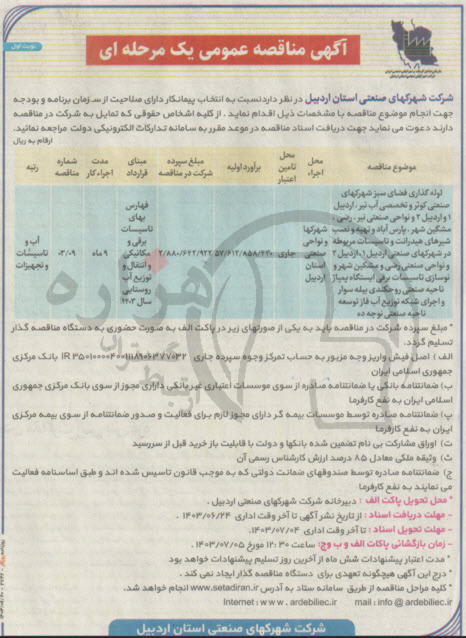 نوبت اول
آگهی مناقصه عمومی یک مرحله ای
شرکت شهرکهای صنعتی استان اردبیل در نظر دارد نسبت به انتخاب پیمانکار دارای صلاحیت از سازمان برنامه و بودجه
جهت انجام موضوع مناقصه با مشخصات ذیل اقدام نماید . از کلیه اشخاص حقوقی که تمایل به شرکت در مناقصه
دارند دعوت می نماید جهت دریافت اسناد مناقصه در موعد مقرر به سامانه تدارکات الکترونیکی دولت مراجعه نمایید.
ارقام به ریال
موضوع مناقصه
محل اجراء
محل تامین اعتبار
برآورد اولیه
مبلغ سپرده شرکت در مناقصه
مبنای قرارداد
مدت اجراء کار
شماره مناقصه
رتبه
لوله گذاری فضای سبز شهرکهای
صنعتی کوثر و تخصصی آب نیر ، اردبیل
۱ و اردبیل ۲ و نواحی صنعتی نیر ، رضی ،
مشگین شهر ، پارس آباد و تهیه و نصب
شیرهای هیدرانت و تاسیسات مربوطه
در شهرکهای صنعتی اردبیل ۱، اردبیل ۲
و نواحی صنعتی رضی و مشگین شهر و
نوسازی تاسیسات برقی ایستگاه پمپاژ
ناحیه صنعتی روحکندی بیله سوار
و اجرای شبکه توزیع آب فاز توسعه
ناحیه صنعتی توجه ده
شهرکها
و نواحی
صنعتی
استان
اردبیل
جاری
فهارس
بهای
تاسیسات
برقی و
مکانیکی
و انتقال و
توزیع آب
روستایی
سال ۱۴۰۳
۹ ماه
۰۳/۰۹
آب و
تاسیسات
و تجهیزات
* مبلغ سپرده شرکت در مناقصه باید به یکی از صورتهای زیر در پاکت الف به صورت حضوری به دستگاه مناقصه گذار
تسلیم گردد.
الف ) اصل فیش واریز وجه مزبور به حساب تمرکز وجوه سپرده جاری بانک مرکزی
جمهوری اسلامی ایران
ب) ضمانتنامه بانکی یا ضمانتنامه صادره از سوی موسسات اعتباری غیر بانکی دارای مجوز از سوی بانک مرکزی جمهوری
اسلامی ایران به نفع کارفرما
پ) ضمانتنامه صادره توسط موسسات بیمه گر دارای مجوز لازم برای فعالیت و صدور ضمانتنامه از سوی بیمه مرکزی
ایران به نفع کارفرما
ت) اوراق مشارکت بی نام تضمین شده بانکها و دولت با قابلیت باز خرید قبل از سررسید
ث) وثیقه ملکی معادل ۸۵ درصد ارزش کارشناس رسمی آن
ج) ضمانتنامه صادره توسط صندوقهای ضمانت دولتی که به موجب قانون تاسیس شده اند و طبق اساسنامه فعالیت
می نمایند به نفع کارفرما
* محل تحویل پاکت الف : دبیرخانه شرکت شهرکهای صنعتی اردبیل .
- مهلت دریافت اسناد : از تاریخ نشر آگهی تا آخر وقت اداری ۱۴۰۳/۰۶/۲۴ .
- مهلت تحویل اسناد : تا آخر وقت اداری ۱۴۰۳/۰۷/۰۴.
- زمان بازگشائی پاکات الف و ب وج: ساعت ۱۲:۳۰ مورخ ۱۴۰۳/۰۷/۰۵.
* مدت اعتبار پیشنهادات شش ماه از آخرین روز تسلیم پیشنهادات خواهد بود
* درج این آگهی هیچگونه تعهدی برای دستگاه مناقصه گذار ایجاد نمی کند .
* کلیه مراحل مناقصه از طریق سامانه ستاد به آدرس www.setadiran.ir انجام خواهد شد.
Internet : www . ardebiliec.ir mail : info @ ardebiliec.ir
شرکت شهرکهای صنعتی استان اردبیل